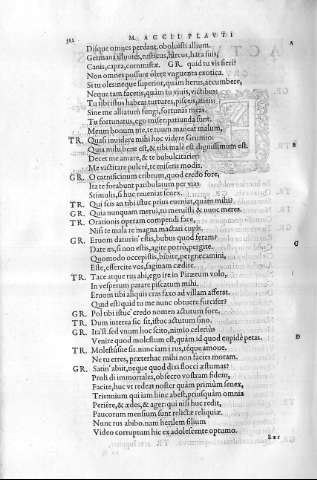 382 M. ACCII PLAVTI
Dii te omnes perdant, oboluisti allium.
Germana illuuies, rusticus, hircus, hara suis,
Canis, capra, commista. GR. quid tu vis fieri?
Non omnes possunt olere vnguenta exotica.
Si tu olesneque superior, quàm herus, accumbere,
Neque tam facetis, quàm tu viuis, victibus.
Tu tibi istos habeas turtures, pisceis, aueis:
Sine me alliatum fungi fortunas meas.
Tu fortunatus, ego miser: patiunda sunt.
Meum bonum me, te tuum maneat malum,
TR. Quasi inuidere mihi hoc videre Grumio:
Quia mihi bene est, & tibi malè est dignissimum est.
Decet me amare, & te bubulcitarier:
Me victitare pulcrè, te miseris modis.
GR. O carnificium cribrum, quod credo fore,
Ita te forabunt patibulatum per vias
Stimulis, si huc reueniat senex.
TR. Qui scis an tibi istuc prius eueniat, quàm mihi?
GR. Quia nunquam merui, tu meruisti & nunc meres.
TR. Orationis operam compendi face,
Nisi te mala re magna mactari cupis.
GR. Eruom daturin' estis, bubus quod feram?
Date æs, si non estis, agite porrò, pergite
Quomodo occepistis, bibite, pergræcamini,
Este, effercite vos, saginam cædite.
TR. Tace atque rus abi, ego ire in Piræeum volo,
In vesperum parare piscatum mihi.
Eruom tibi aliquis cras faxo ad villam afferat.
Quid est? quid tu me nunc obtuere furcifer?
GR. Pol tibi istuc credo nomen actutum fore,
TR. Dum interea sic sit, istuc actutum sino,
GR. Ita est. sed vnum hoc scito, nimio celerius
Venire quod molestum est, quàm id quod cupidè petas.
TR. Molestus ne sis. nunc iam i rus, téque amoue,
Ne tu erres, præterhac mihi non facies moram.
GR. Satin' abiit, neque quod dixi flocci æstumas?
Proh dî immortales, obsecro vostram fidem,
Facite, huc vt redeat noster quàm primùm senex,
Triennium qui iam hinc abest, priusquàm omnia
Periere, & ædes, & ager: qui nisi huc redit,
Paucorum mensium sunt relictæ reliquiæ.
Nunc rus abibo. nam herilem filium
Video corruptum hic ex adolescente optumo.
A
B
C
D